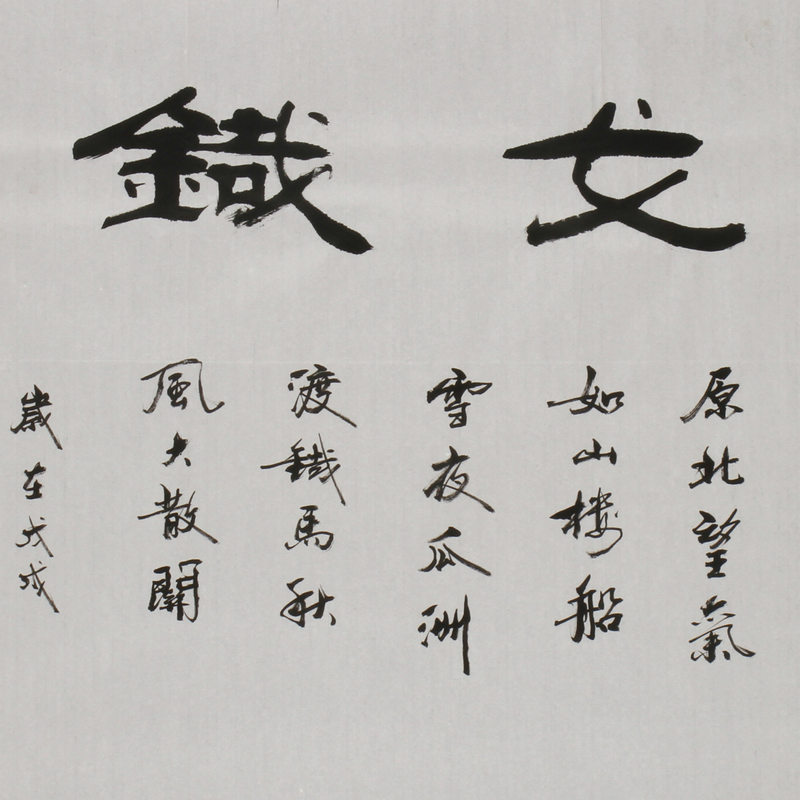 戈鐵
原北望氣
如山楼船
雪夜瓜洲
渡鐵馬秋
風大散關
歲在戊戌